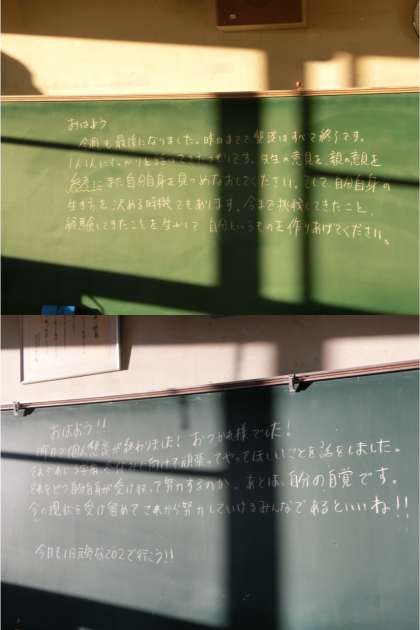 おはよう
今週も最後になりました。昨日までで懇談はすべて終了です。
1人1人にしっかりと話してきたつもりです。先生の意見を、親の意見を
参考にまた自分自身を見つめなおしてください。そして、自分自身の
生き方を決める時機でもあります。今まで挑戦してきたこと、
経験してきたことを生かして自分というものを作りあげてください。
おはよう!!
昨日で個人懇談が終わりました!おつかれ様でした!
に向けて頑張ってやってほしいことを話をしました。
それをどう自分自身が受け取って努力するのか、あとは、自分の自覚です。
今の現状を受け留めてこれから努力していけるみんなであるといいね!!
今日も1日頑な202で行こう!!